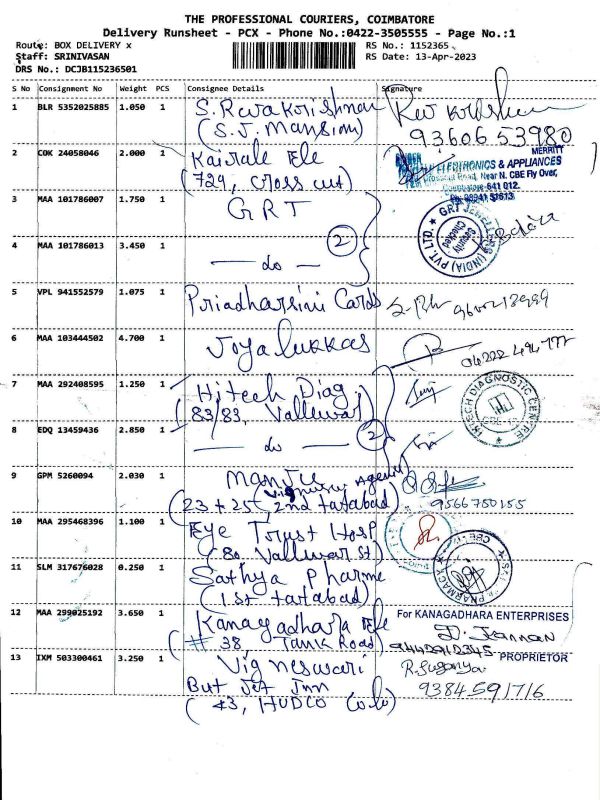 THE PROFESSIONAL COURIERS, COIMBATORE
Delivery Runsheet - PCX - Phone No.:0422-3505555 - Page No.:1
Route: BOX DELIVERY x RS No.: 1152365
Staff: SRINIVASAN RS Date: 13-Apr-2023
DRS No.: DCJB115236501
S No Consignment No Weight PCS Consignee Details Signature
1 BLR 5352025885 1.050 1 S. Rwakrishnan
(S.J. Mansion) 93606 53980
2 COK 24058046 2.000 1 Kairale Ele MERRITT
ELECTRONICS & APPLIANCES
(729, cross cut) Near N. CBE Fly Over,
Coimbatore-641 012.
3 MAA 101786007 1.750 1 GRT
GRT JEWELLERS (INDIA) PVT. LTD.
Security Checked
4 MAA 101786013 3.450 1 — do — 2
5 VPL 941552579 1.075 1 Priadharsini Cards
6 MAA 103444502 4.700 1 Joyalukkas
7 MAA 292408595 1.250 1 Hitech Diag
(83/83, Valluvar) HITECH DIAGNOSTIC CENTRE
8 EDQ 13459436 2.850 1 — do — 2
9 GPM 5260094 2.030 1 Manju Agency
(23 + 25, 2nd tatabad) 9566750155
10 MAA 295468396 1.100 1 Eye Trust Hosp
(80, Valluvar St)
11 SLM 317676028 0.250 1 Sathya Pharme
(1st tatabad) PHARMACY
12 MAA 299025192 3.650 1 Kanagadhara Ele For KANAGADHARA ENTERPRISES
(# 38, Tank Road) 9442912345 PROPRIETOR
13 IXM 503300461 3.250 1 Vigneswari R. Suganya
But Jet Inn 9384591716
(43, HUDCO Colo)